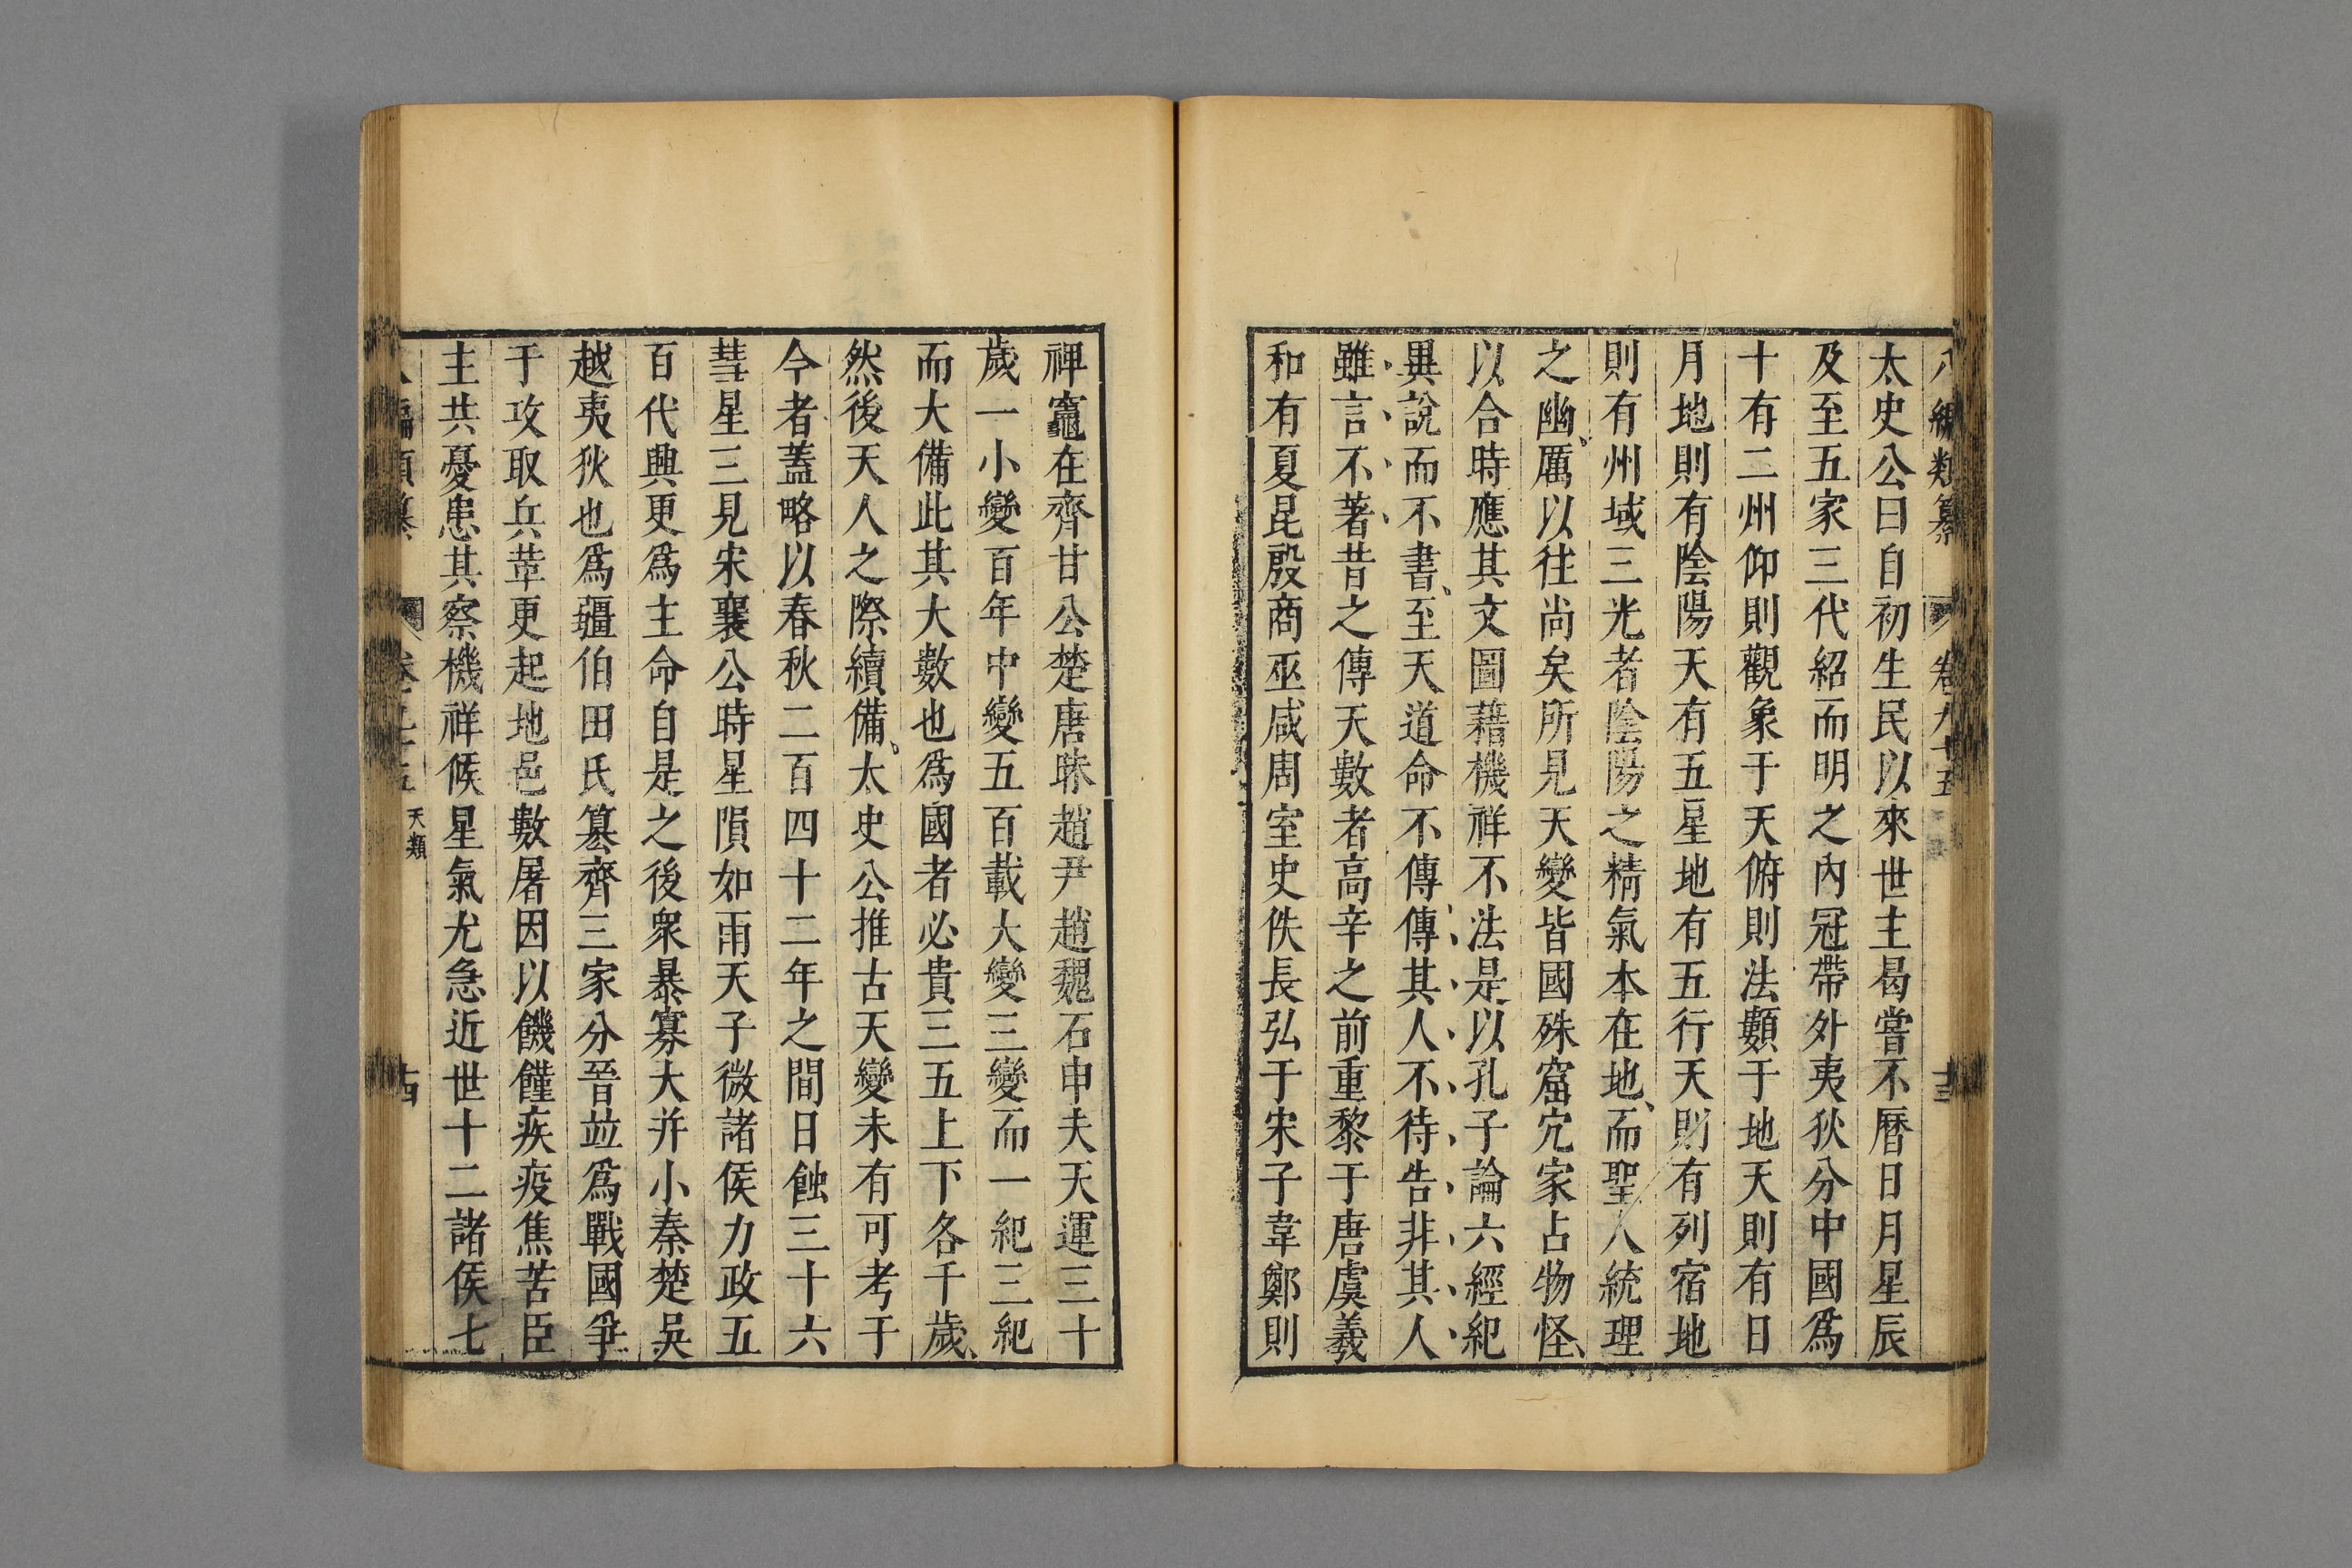 八編類纂 卷九十五 十三
太史公曰自初生民以來世主曷嘗不曆日月星辰
及至五家三代紹而明之內冠帶外夷狄分中國爲
十有二州仰則觀象于天俯則法類于地天則有日
月地則有陰陽天有五星地有五行天則有列宿地
則有州域三光者陰陽之精氣本在地、而聖人統理
之幽厲、以往尚矣所見天變皆國殊窟穴家占物怪、
以合時應其文圖藉機祥不法是以孔子論六經紀
異說而不書、至天道命不傳傳其人不待告非其人
雖言不著昔之傳天數者高辛之前重黎于唐虞羲
和有夏昆殷商巫咸周室史佚長弘于宋子韋鄭則
裨竈在齊甘公楚唐昧趙尹趙魏石申夫天運三十
歲一小變百年中變五百載大變三變而一紀三紀
而大備此其大數也爲國者必貴三五上下各千歲、
然後天人之際續備、太史公推古天變未有可考于
今者蓋略以春秋二百四十二年之間日蝕三十六
彗星三見宋襄公時星隕如雨天子微諸侯力政五
百代興更爲主命自是之後衆暴寡大并小秦楚吳
越夷狄也爲疆伯田氏簒齊三家分晉竝爲戰國爭
于攻取兵革更起地邑數屠因以饑饉疾疫焦苦臣
主共憂患其察機祥候星氣尤急近世十二諸侯七
編類纂 卷 十五 天類 十四